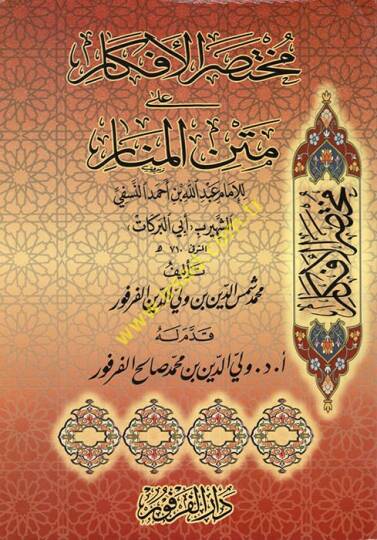 مختصر الأفكار
على
متن المنار
للإمام عبد الله بن أحمد النسفي
الشهير بـ أبي البركات
المتوفى ٧١٠ هـ
تأليف
محمد شمس الدين بن ولي الدين الفرفور
قدم له
أ. د. ولي الدين بن محمد صالح الفرفور
مختصر الأفكار
دار الفرفور